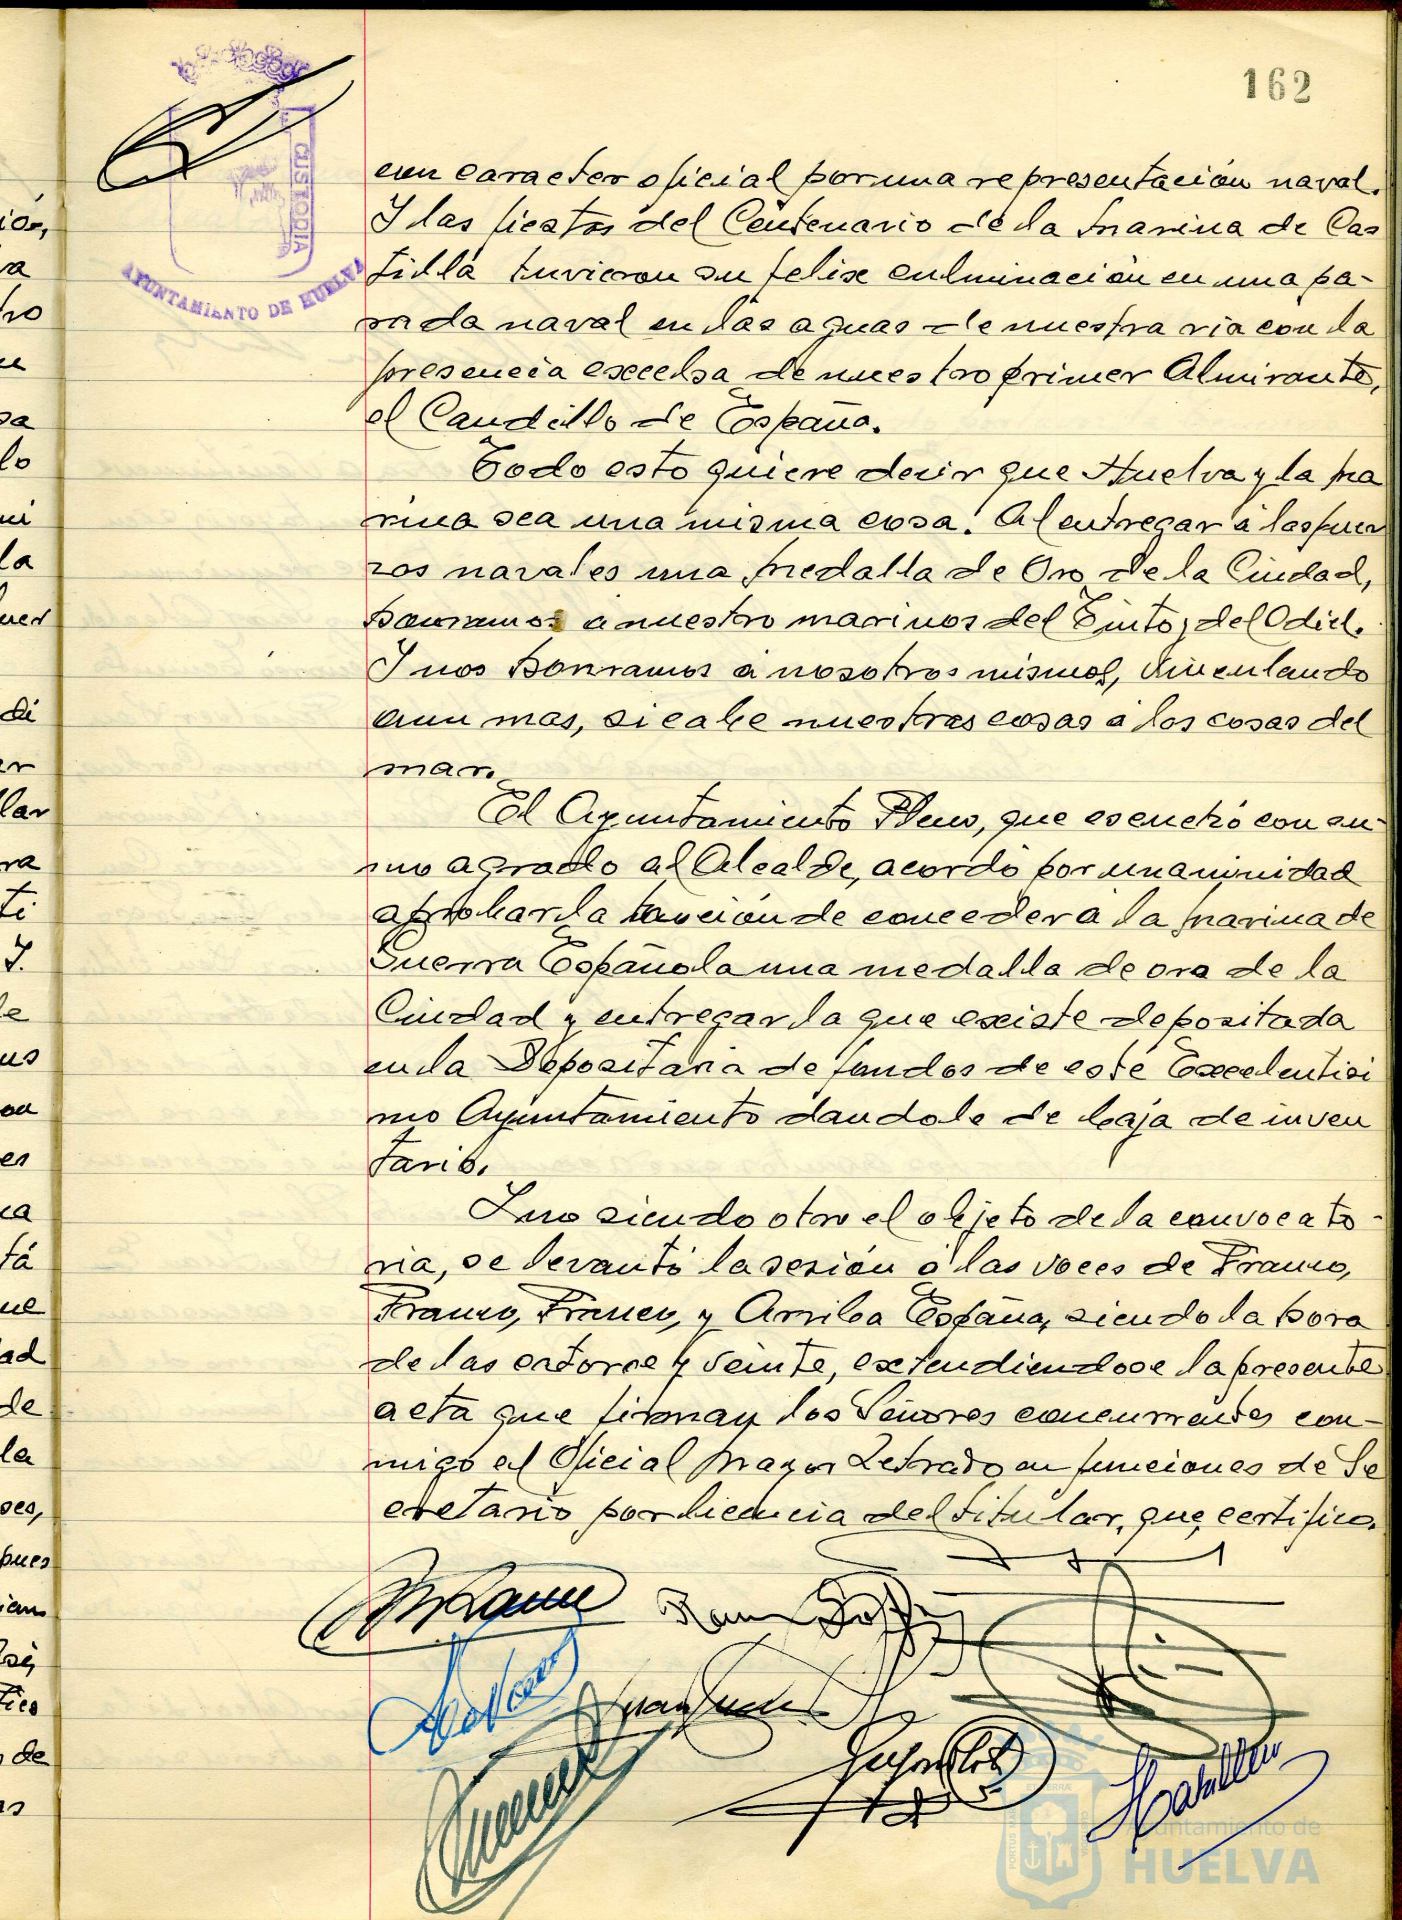 162
CUSTODIA
AYUNTAMIENTO DE HUELVA
con caracter oficial por una representación naval.
Y las fiestas del Centenario de la Marina de Cas
tilla tuvieron su felix culminación en una pa-
rada naval en las aguas de nuestra ria con la
presencia excelsa de nuestro primer Almirante,
el Caudillo de España.
Todo esto quiere decir que Huelva y la Ma
rina sea una misma cosa. Al entregar a las fuer
zas navales una Medalla de Oro de la Ciudad,
honramos a nuestro marinos del Tinto y del Odiel.
Y nos honramos a nosotros mismos, vinculando
aun mas, si cabe nuestras cosas a las cosas del
mar.
El Ayuntamiento Pleno, que escuchó con su-
mo agrado al Alcalde, acordó por unanimidad
aprobar la de conceder a la Marina de
Guerra Española una medalla de oro de la
Ciudad y entregar la que existe depositada
en la Depositaria de fondos de este Excelentisi
mo Ayuntamiento dandole de baja de inven
tario.
Y no siendo otro el objeto de la convocato-
ria, se levantó la sesión a las voces de Franco,
Franco, Franco, y Arriba España, siendo la hora
de las catorce y veinte, extendiendose la presente
acta que firman los Señores concurrentes con-
migo el Oficial Mayor Letrado en funciones de Se
cretario por licencia del titular, que, certifico.
Ayuntamiento de
HUELVA